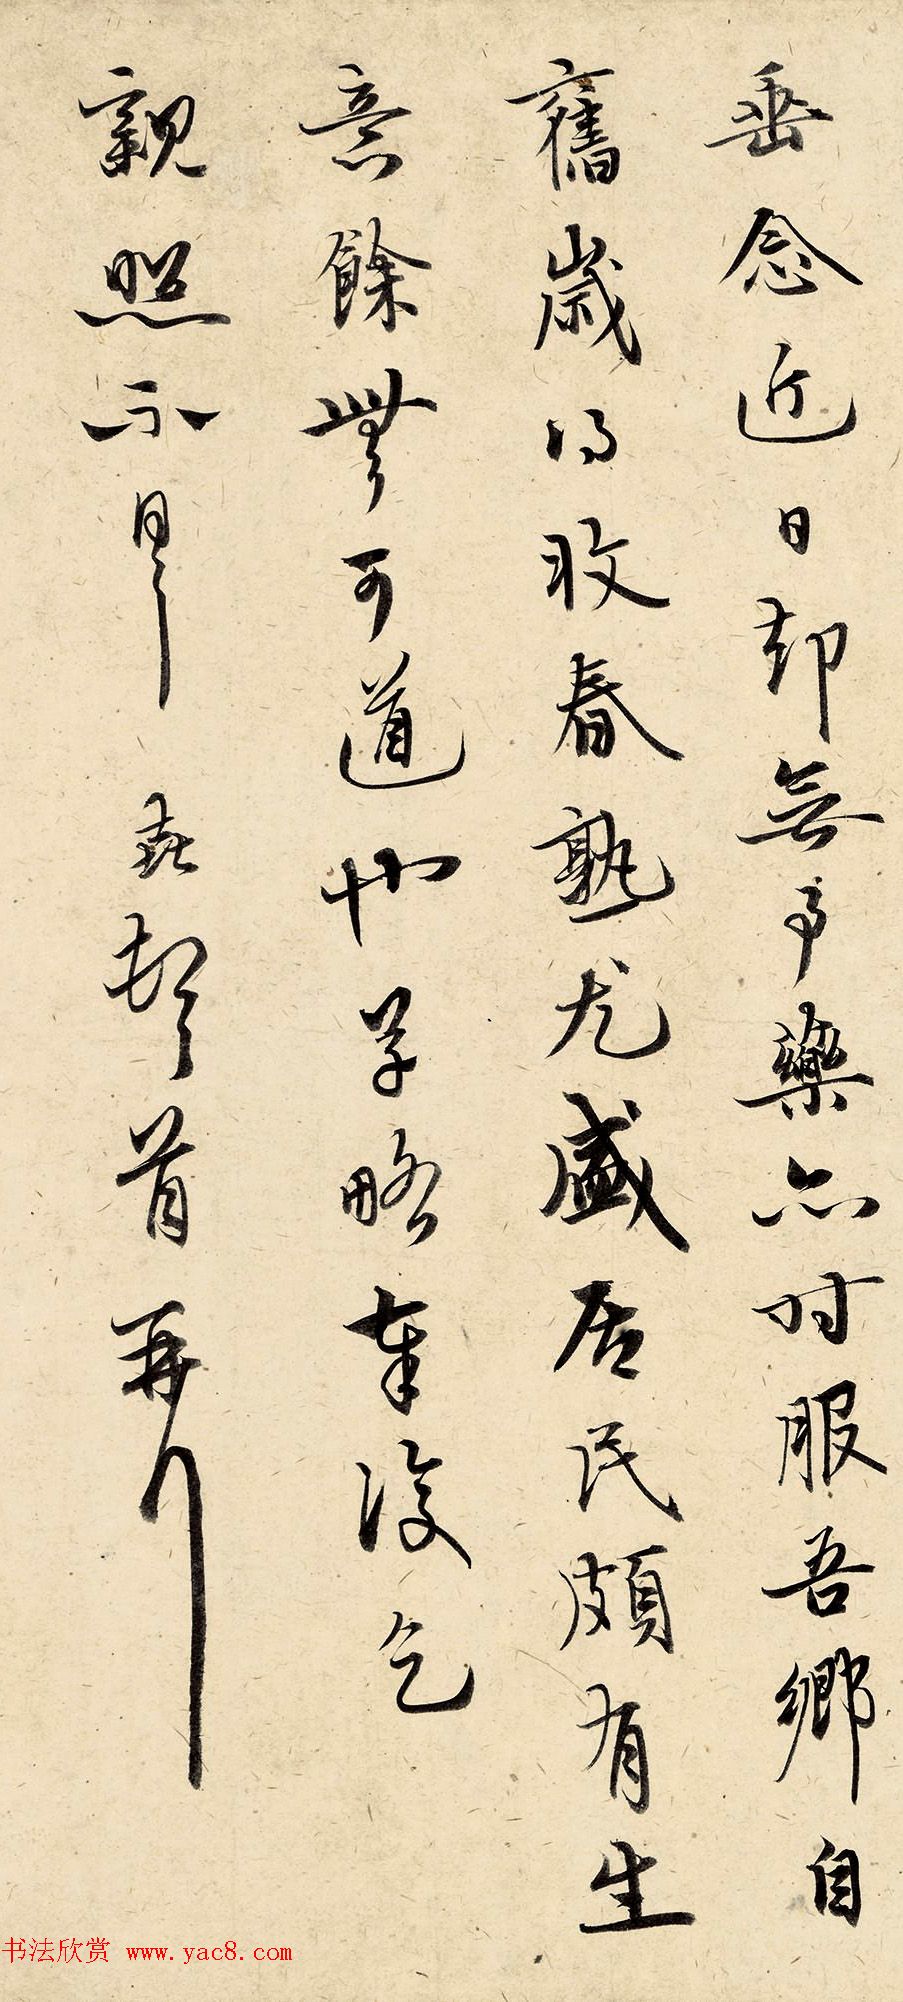 垂念近日却無事藥亦时服吾鄉自
舊歲得收春熟尤盛居民頗有生
意餘無可道草略奉復乞
親照不宣
頓首再拜
书法欣赏 www.yac8.com